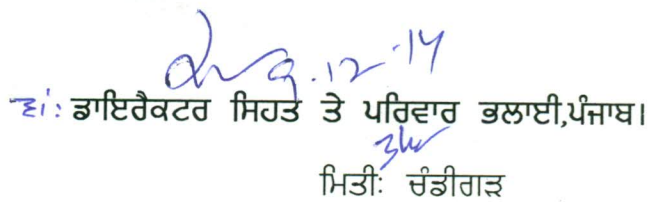 9.12.14
ਵਾਂ: ਡਾਇਰੈਕਟਰ ਸਿਹਤ ਤੇ ਪਰਿਵਾਰ ਭਲਾਈ,ਪੰਜਾਬ।
ਮਿਤੀਃ ਚੰਡੀਗੜ